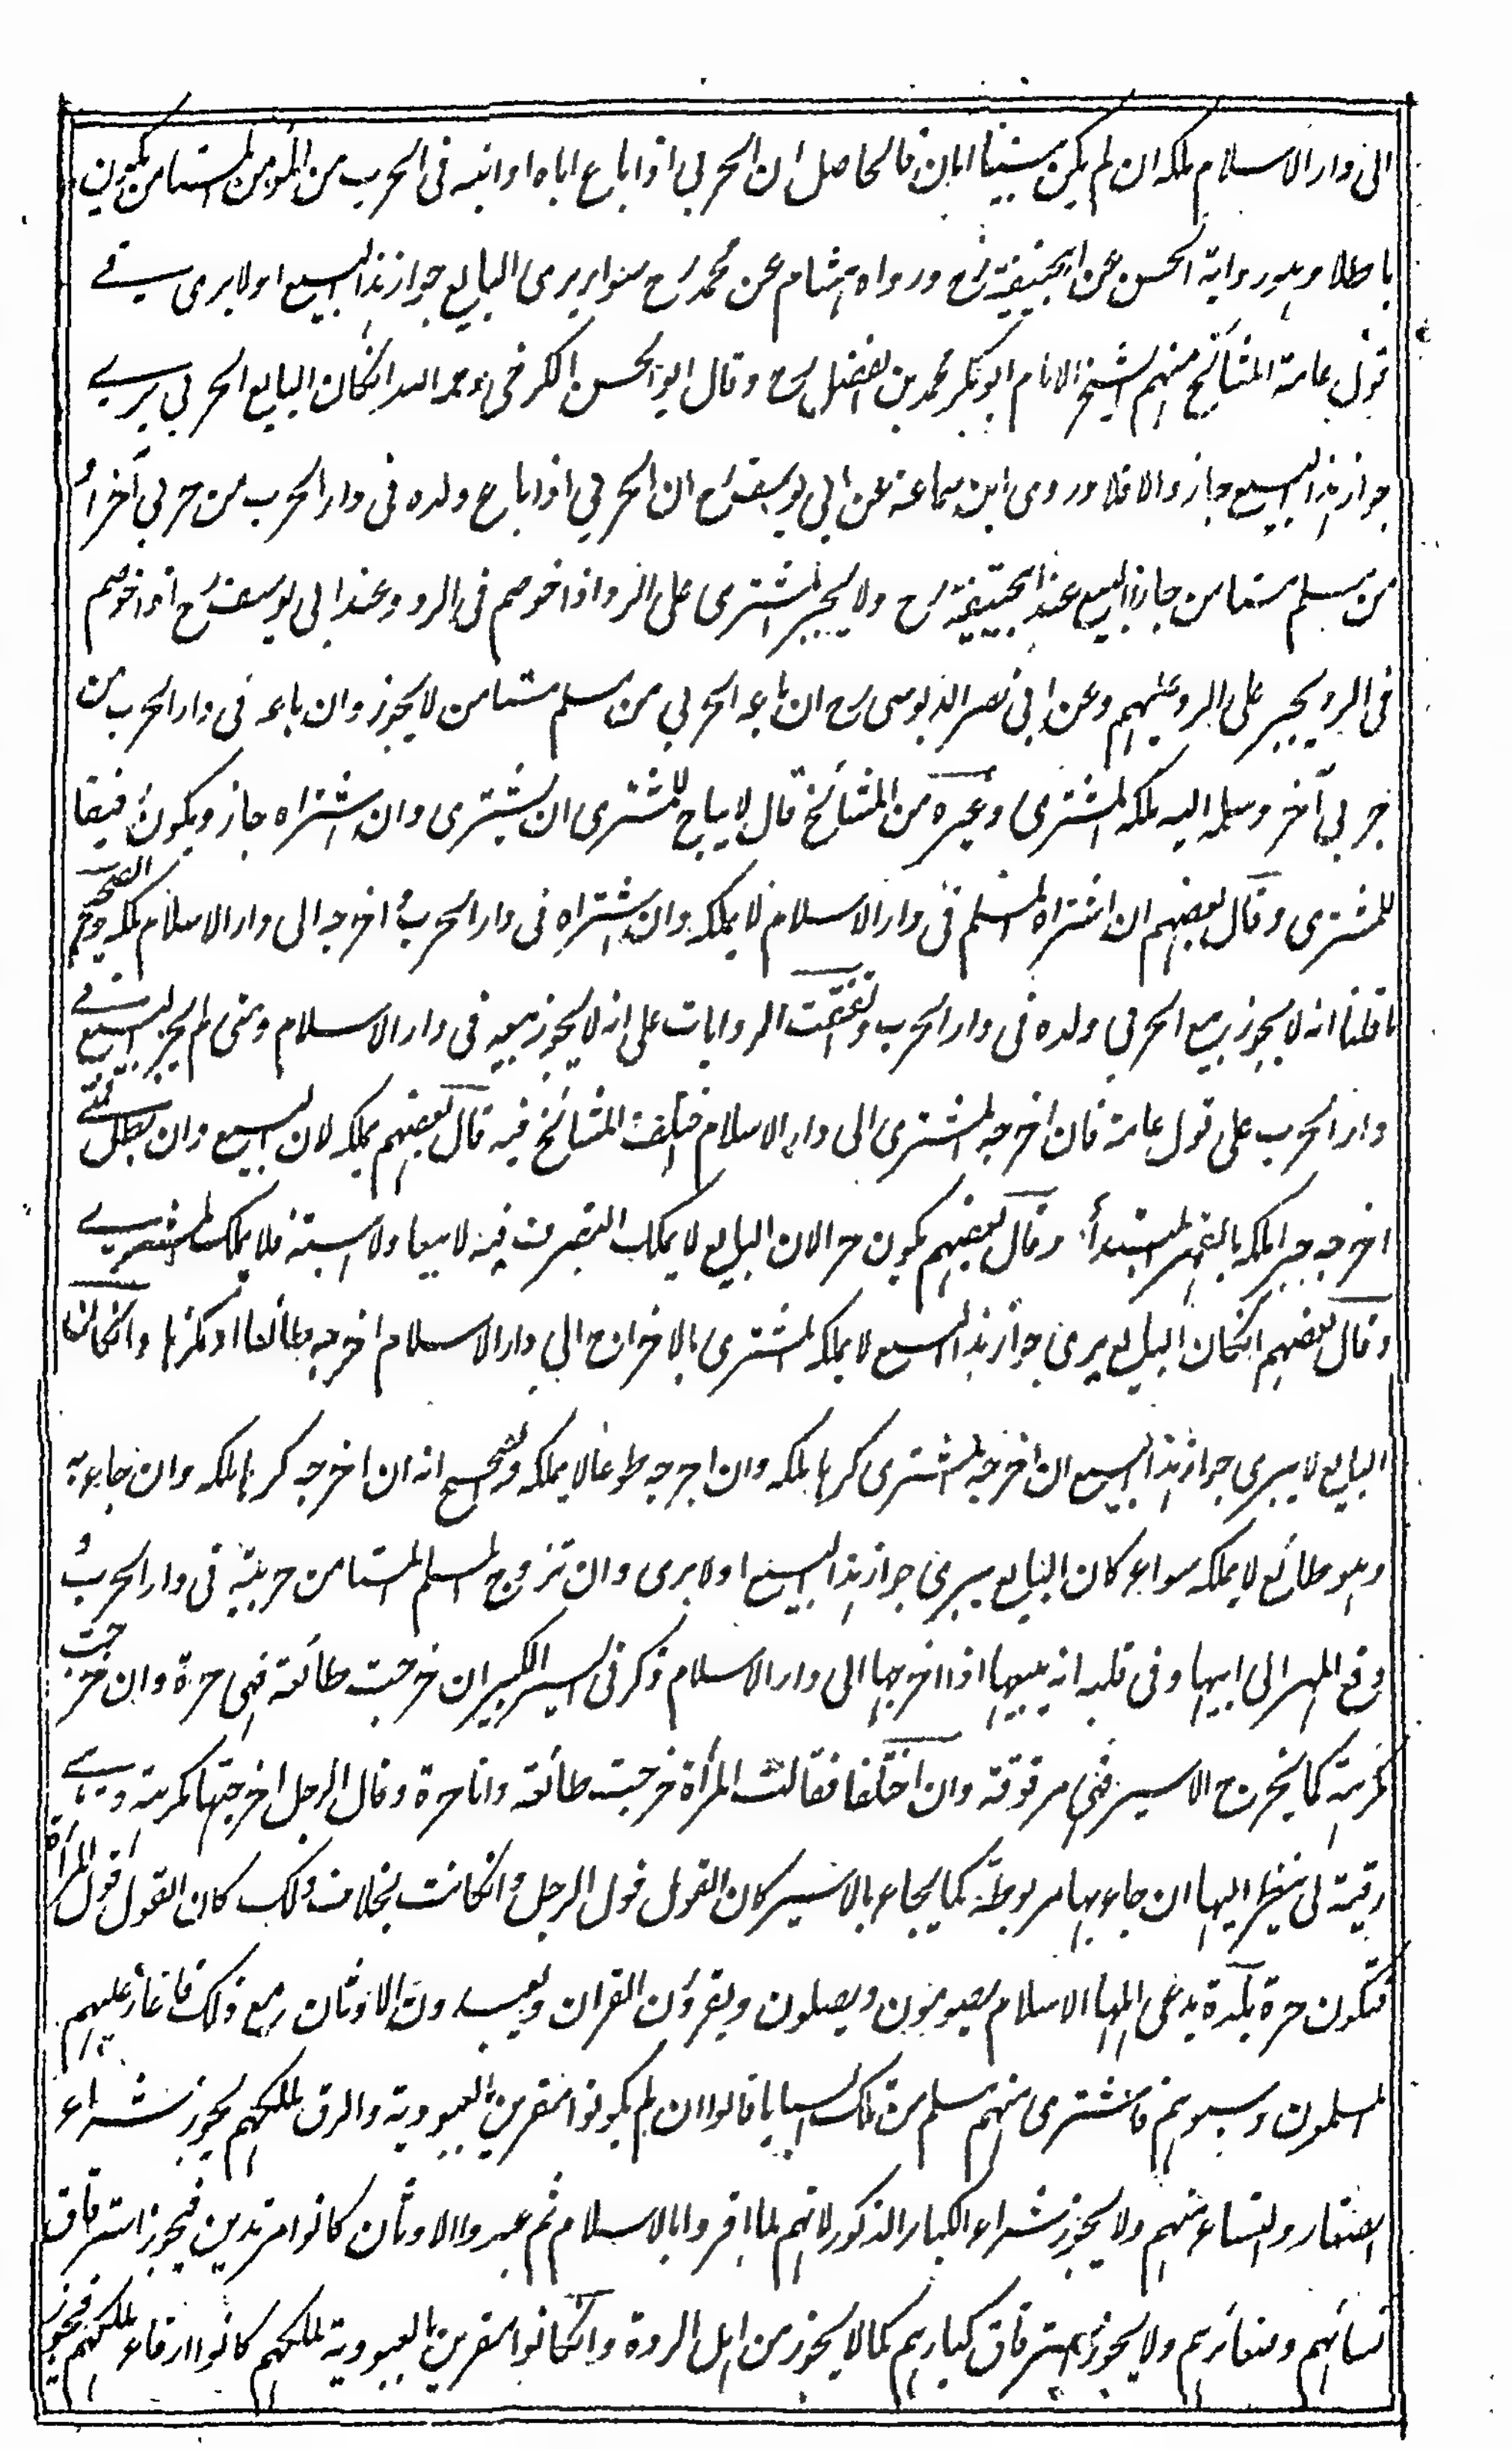 الى دار الاسلام ملكه ان لم يكن مستبينا ابان فالحاصل ان الحربي اذا باع اباه او ابنه فى الحرب من المؤمن المستامن يكون
باطلا وهو رواية الحسن عن ابيحنيفة رح ورواه هشام عن محمد رح سواء يرى البايع جواز هذا البيع او لا يرى فى
قول عامة المشائخ منهم الشيخ الامام ابو بكر محمد بن الفضل رح وقال ابو الحسن الكرخى رحمه الله انكان البايع الحربي يرى
جواز هذا البيع جاز والا فلا وروى ابن سماعة عن ابي يوسف رح ان الحربي اذا باع ولده فى دار الحرب من حربي آخر او
من مسلم مستامن جاز البيع عند ابيحنيفة رح ولا يجبر المشترى على الرد اذا خوصم فى الرد وعند ابى يوسف رح اذا خوصم
فى الرد يجبر على الرد عليهم وعن ابى نصر الدبوسى رح ان باعه الحربي من مسلم مستامن لا يجوز وان باعه فى دار الحرب من
حربي آخر وسلمه اليه ملكه المشترى وغيره من المشائخ قال لا يباح للمشترى ان يشترى وان اشتراه جاز ويكون رقيقا
للمشترى وقال بعضهم ان اشتراه المسلم فى دار الاسلام لا يملكه وان اشتراه فى دار الحرب واخرجه الى دار الاسلام ملكه والصحيح
ما قلنا انه لا يجوز بيع الحربي ولده فى دار الحرب واتفقت الروايات على انه لا يجوز بيعه فى دار الاسلام ومتى لم يجز البيع فى
دار الحرب على قول عامة فان اخرجه المشترى الى دار الاسلام اختلف المشائخ فيه قال بعضهم يملكه لان البيع وان بطل فمتى
اخرجه جبرا ملكه بالقهر المبتدأ وقال بعضهم يكون حرا لان البايع لا يملك التصرف فيه لا بيعا ولا هبة فلا يملك المشترى
وقال بعضهم انكان البايع يرى جواز هذا البيع لا يملكه المشترى بالاخراج الى دار الاسلام اخرجه طائعا او مكرها وانكان
البايع لا يرى جواز هذا البيع ان اخرجه المشترى كرها يملكه وان اخرجه طوعا لا يملكه والصحيح انه ان اخرجه كرها ملكه وان جاء به
وهو طائع لا يملكه سواء كان البايع يرى جواز هذا البيع او لا يرى وان تزوج المسلم المستامن حربية فى دار الحرب و
دفع المهر الى ابيها وفى قلبه انه يبيعها اذا اخرجها الى دار الاسلام ذكر فى السير الكبير ان خرجت طائعة فهى حرة وان خرجت
مكرهة كما يخرج الاسير فهى مرقوقة وان اختلفا فقالت المرأة خرجت طائعة وانا حرة وقال الرجل اخرجتها مكرهة وهى
رقيقة لى ينظر اليها ان جاء بها مربوطة كما يجاء بالاسير كان القول قول الرجل وانكانت بخلاف ذلك كان القول قول المرأة
فتكون حرة بلدة يدعى اهلها الاسلام يصومون ويصلون ويقرؤن القران ويعبدون الاوثان مع ذلك فاغار عليهم
المسلمون وسبوهم فاشترى منهم مسلم من تلك السبايا قالوا ان لم يكونوا مقرين بالعبودية والرق لملكهم يجوز شراء
الصغار والنساء منهم ولا يجوز شراء الكبار الذكور لانهم لما اقروا بالاسلام ثم عبدوا الاوثان كانوا مرتدين فيجوز استرقاق
نسائهم وصغائرهم ولا يجوز استرقاق كبارهم كما لا يجوز من اهل الردة وانكانوا مقرين بالعبودية لملكهم كانوا ارقاء لملكهم فيجوز